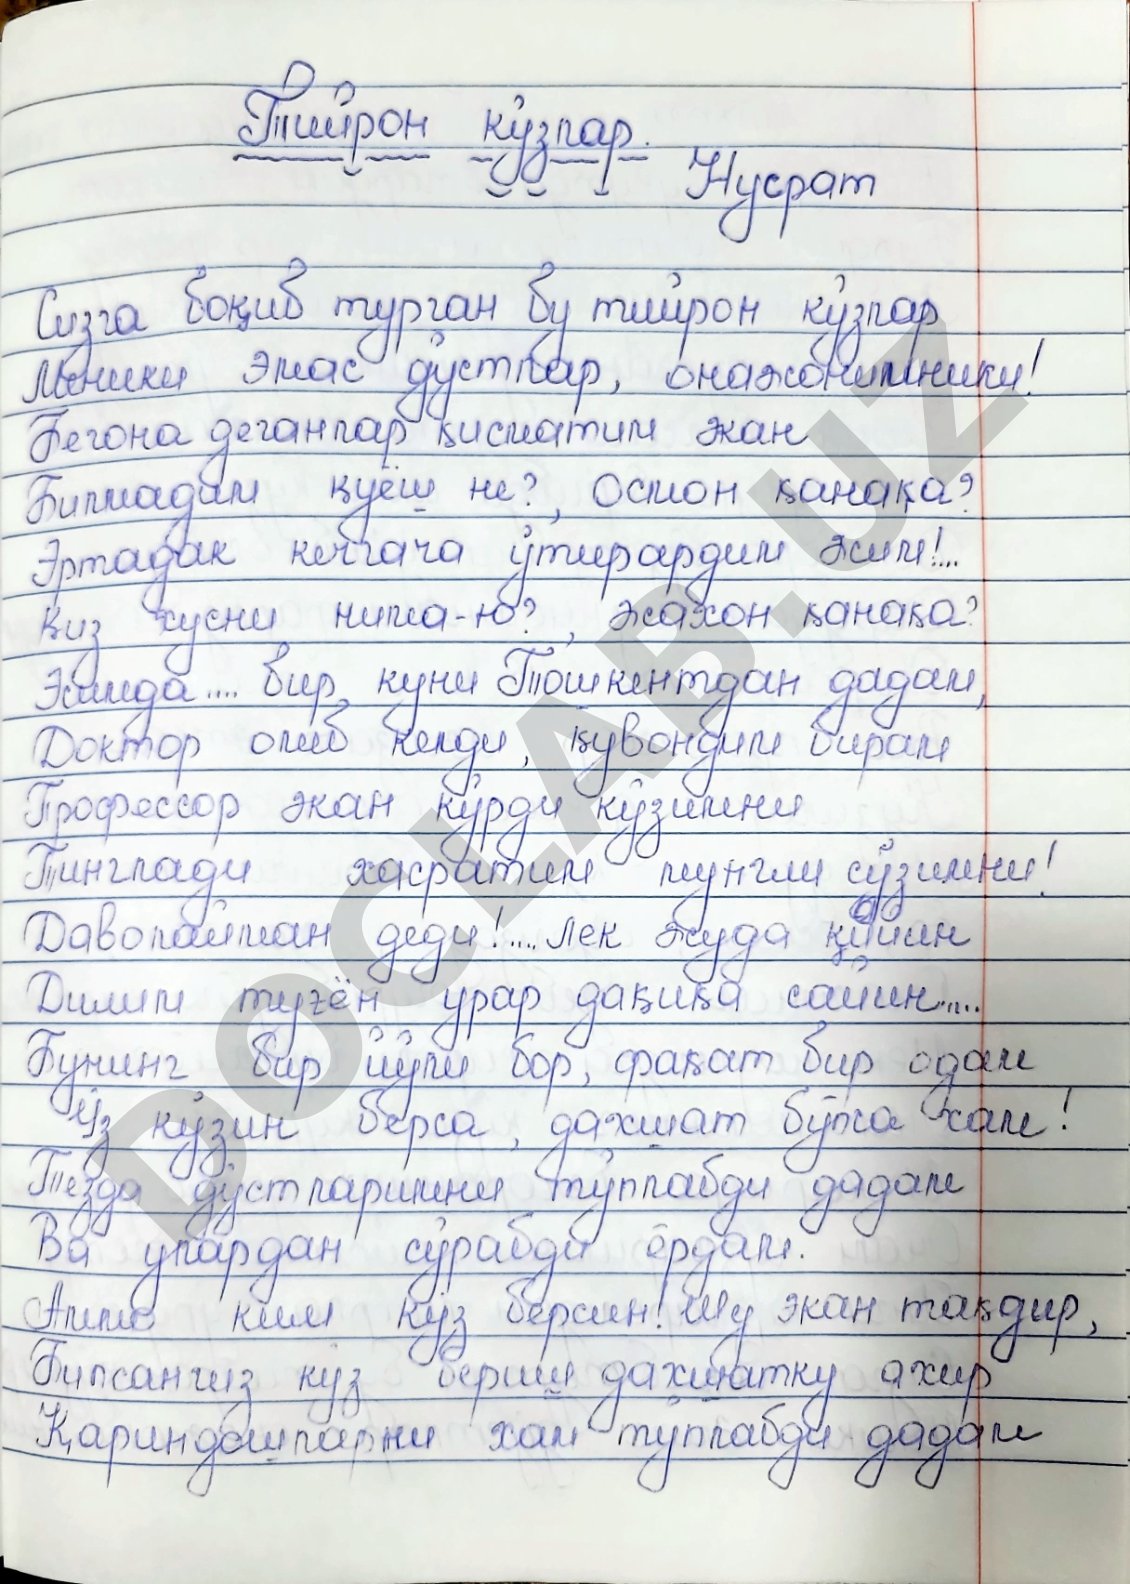 Тийрон кўзлар.
Нусрат
Сизга боқиб турган бу тийрон кўзлар
Меники эмас дўстлар, онажонимники!
Бегона деганлар қисматим экан
Билмадим қуёш не?, Осмон қанақа?
Эртадак кечгача ўтирардим жим!...
Қиз хусни нима-ю?, Жахон қанақа?
Эсимда.... бир куни Тошкентдан дадам,
Доктор олиб келди, қувондим бирам
Профессор экан кўрди кўзимни
Тинглади хасратим мунгли сўзимни!
Даволайман деди!.... Лек жуда қийин
Дилим туғён урар дақиқа сайин.....
Бунинг бир йўли бор, фақат бир одам
Ўз кўзин берса, дахшат бўлса хам!
Тезда дўстларимни тўплабди дадам
Ва улардан сўрабди ёрдам.
Аммо ким кўз берсин! Шу экан тақдир,
Билсангиз кўз бериш дахшатку ахир
Қариндошларни хам тўплабди дадам
DOCLAB.UZ